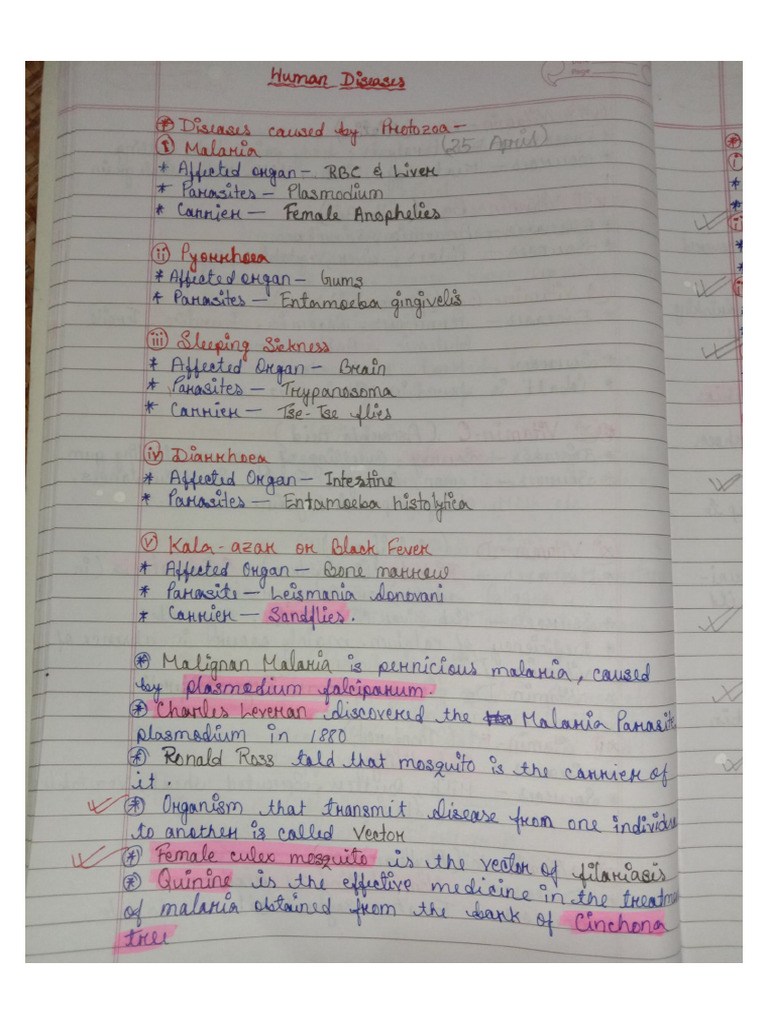 Human Diseases
Page
* Diseases caused by Protozoa-
(25 April)
i Malaria
* Affected organ- RBC & Liver
* Parasites - Plasmodium
* Carrier - Female Anophelies
ii Pyorrhoea
* Affected organ - Gums
* Parasites - Entamoeba gingivelis
iii Sleeping Sickness
* Affected Organ - Brain
* Parasites - Trypanosoma
* Carrier - Tse-Tse flies
iv Diarrhoea
* Affected Organ - Intestine
* Parasites - Entamoeba histolytica
v Kala-azar or Black Fever
* Affected Organ - Bone marrow
* Parasite - Leismania donovani
* Carrier - Sandflies.
* Malignan Malaria is pernicious malaria, caused
by plasmodium falciparum.
* Charles Leveran discovered the Malaria Parasite
plasmodium in 1880
* Ronald Ross told that mosquito is the carrier of
it.
* Organism that transmit disease from one individu
to another is called Vector
* Female culex mosquito is the vector of filariasis
* Quinine is the effective medicine in the treatm
of malaria obtained from the bark of Cinchona
tree